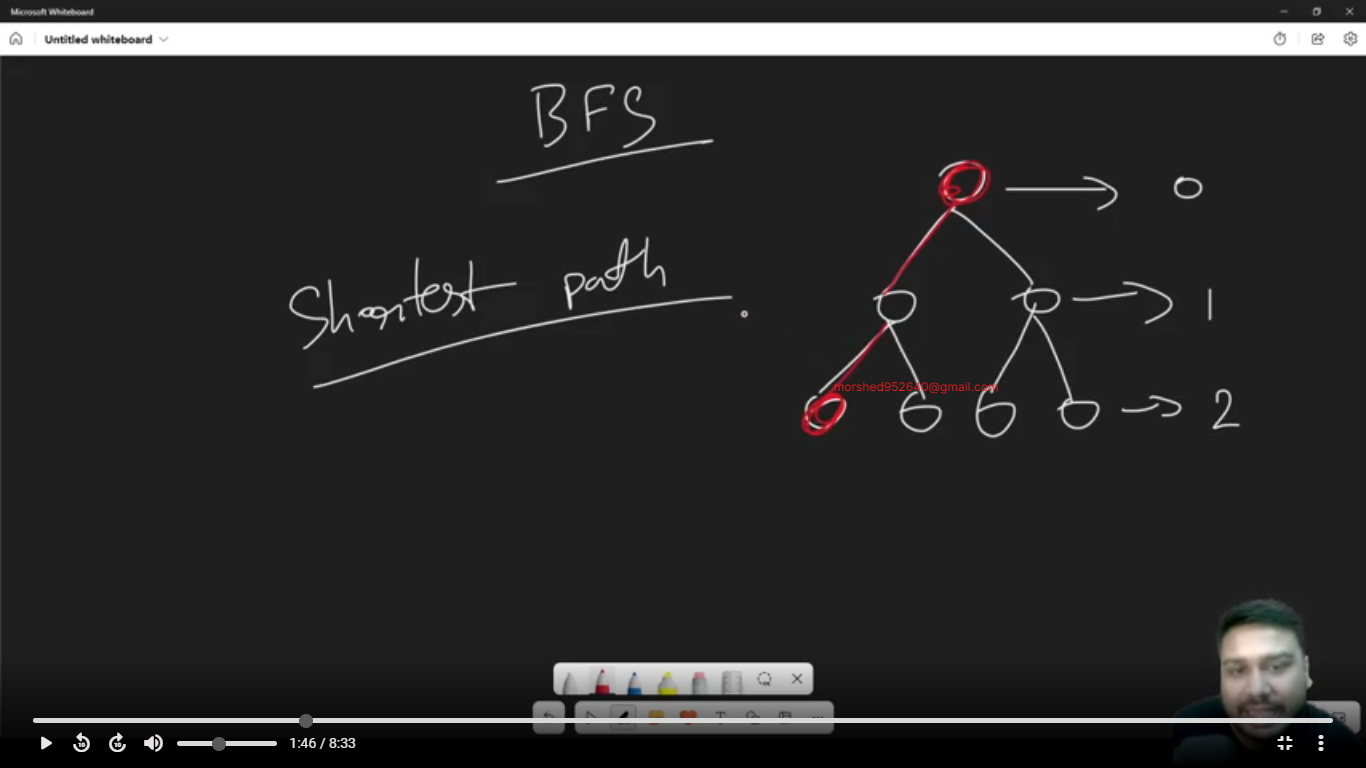 Microsoft Whiteboard
Untitled whiteboard
BFS
0
Shortest path
1
morshed952640@gmail.com
2
10 10 1:46 / 8:33